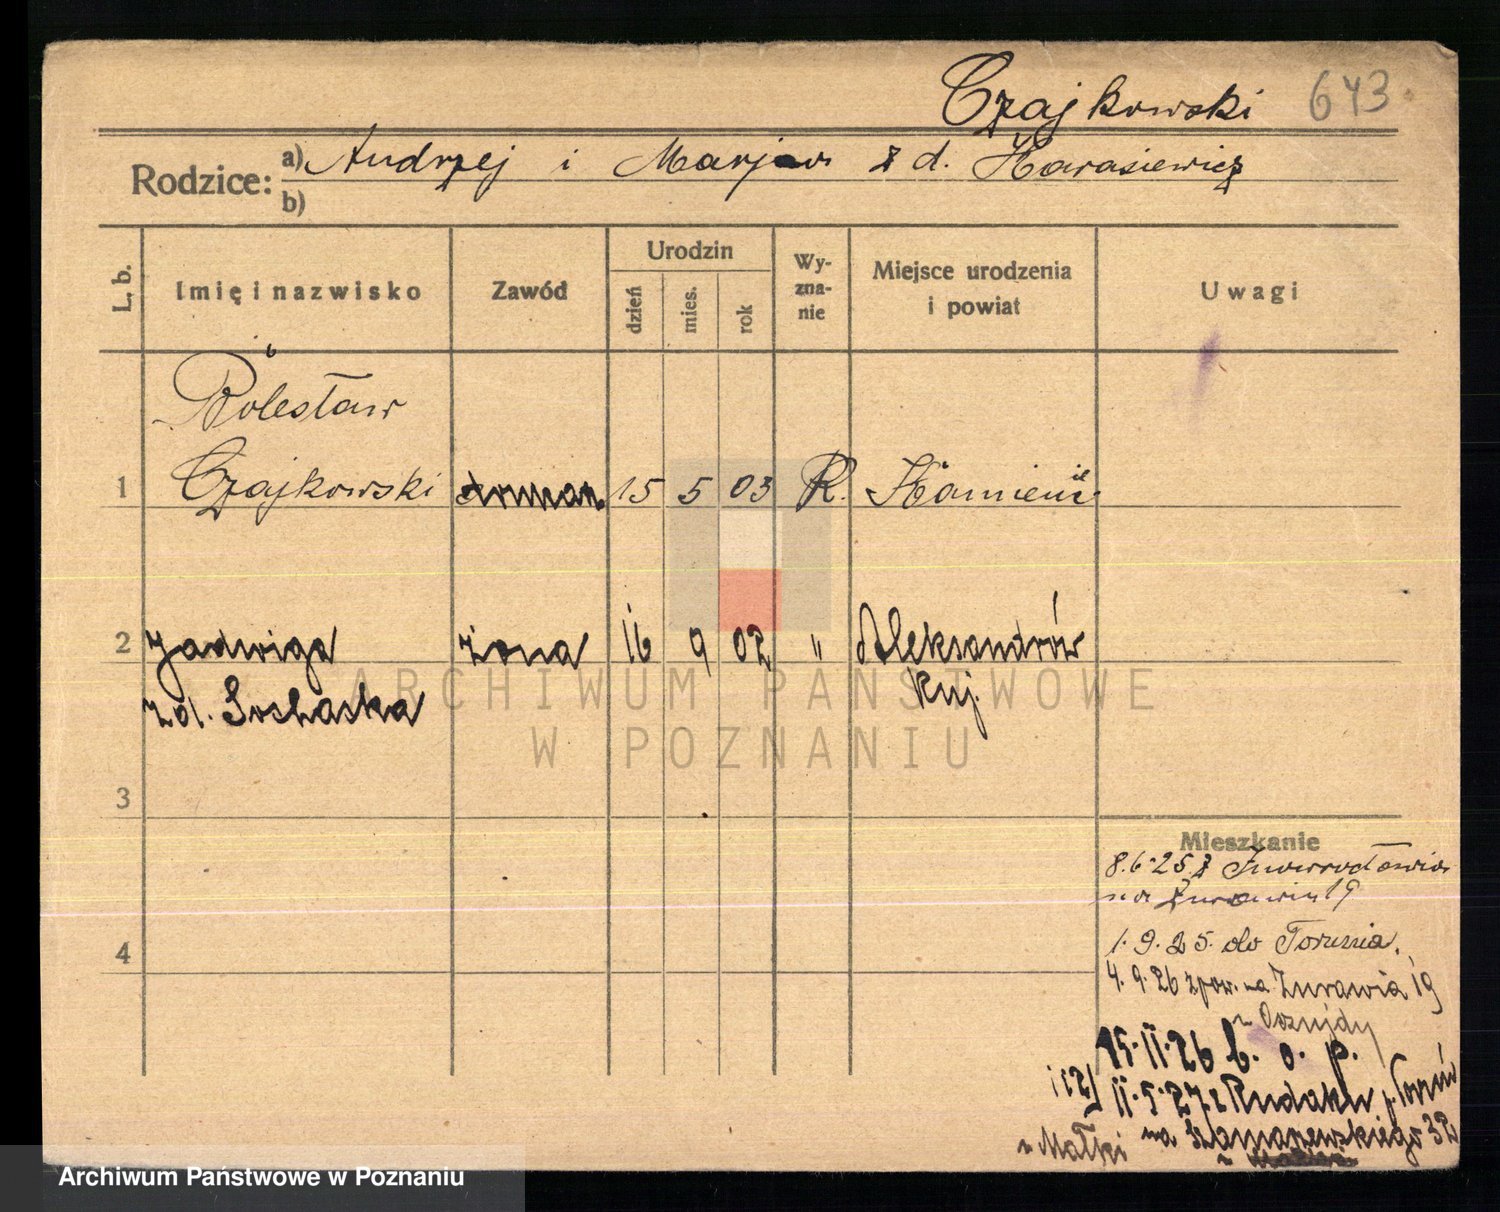 Czajkowski 643
Rodzice: a) Andrzej i Marja z d. Harasiewicz
b)
L. b. Imię i nazwisko Zawód Urodzin dzień mies. rok Wy-zna-nie Miejsce urodzenia i powiat Uwagi
Bolesław
1 Czajkowski 15 5 03 R. Kamieniec
2 Jadwiga żona 16 9 02 " Aleksandrów
zd. Sochaska Kuj.
3
Mieszkanie
8.6.25 z Inowrocławia
na Żurawia 19
4
1.9.25 do Torunia.
4.9.26 pow. na Żurawia 19
15.11.26 b. o. p.
i 12/ 11.5.27 z Rudaku p. Toruń
u Małki na Szamarzewskiego 32
ARCHIWUM PAŃSTWOWE
W POZNANIU
Archiwum Państwowe w Poznaniu